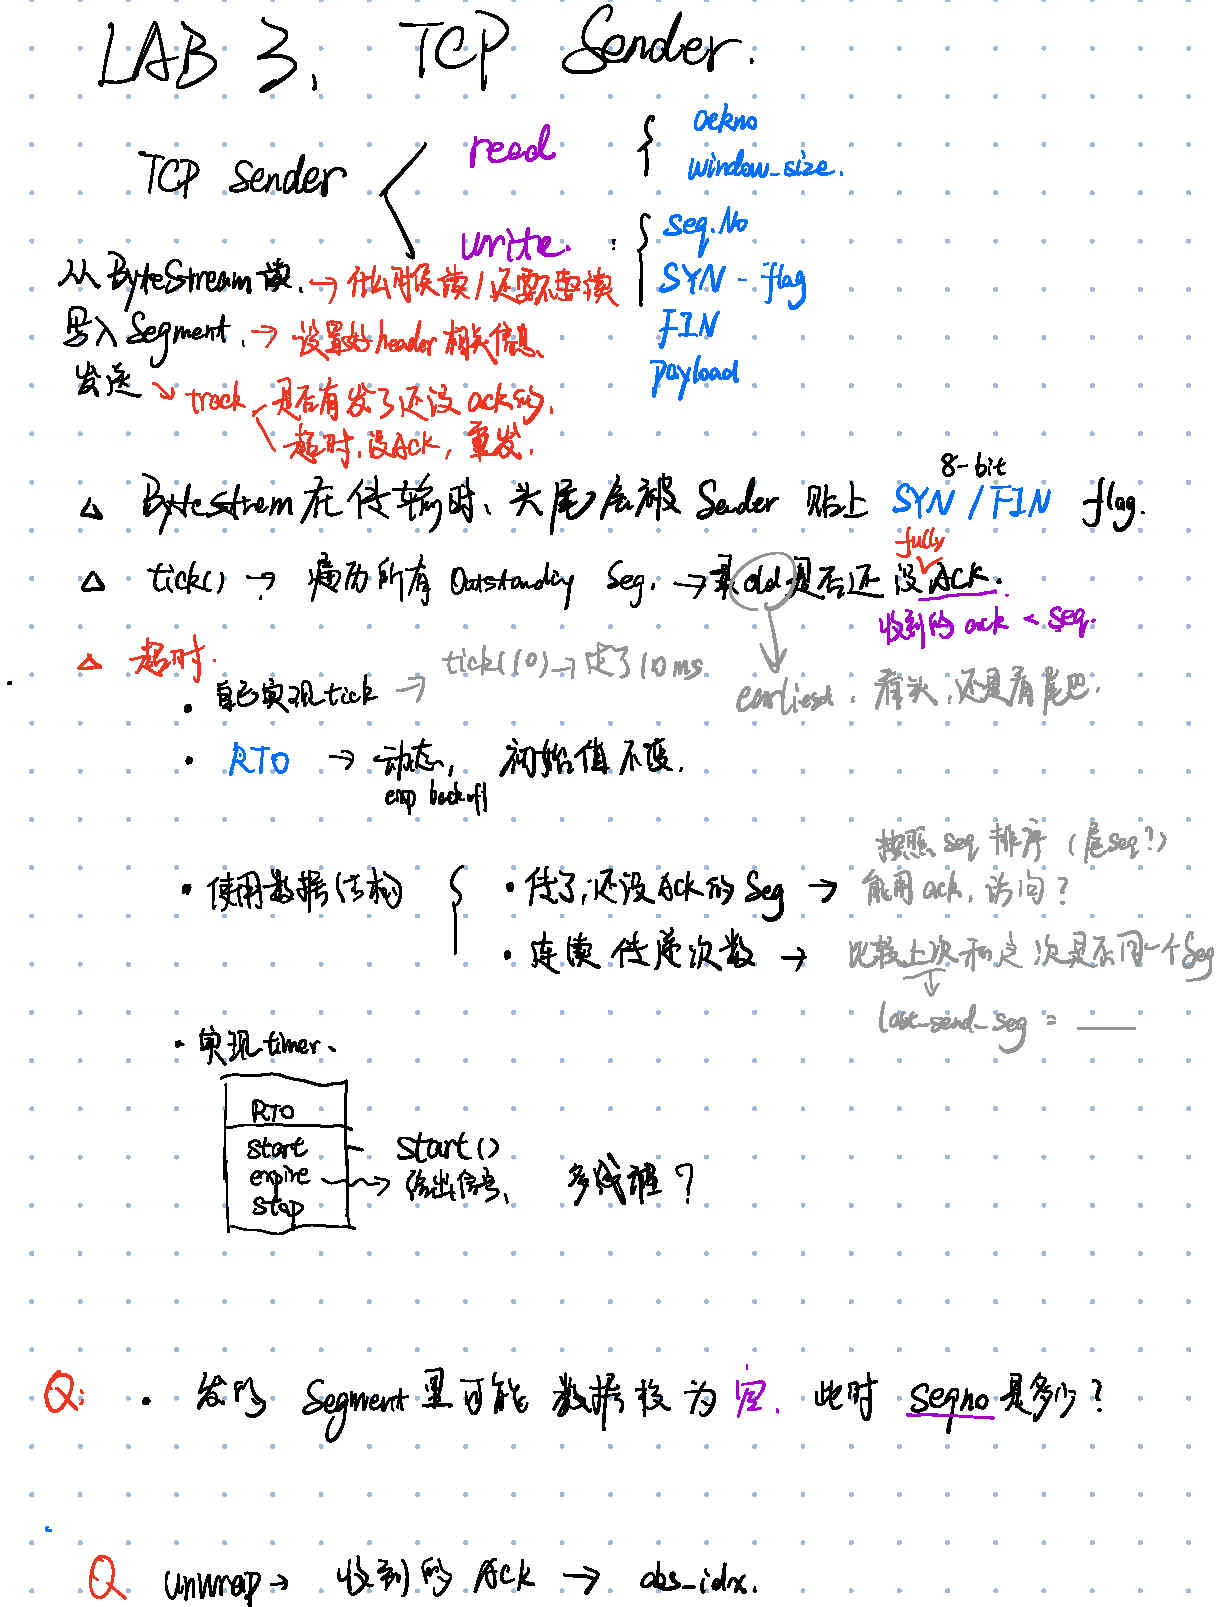 LAB 3. TCP Sender.
TCP Sender
read
ackno
window_size.
write
: seq.No
SYN - flag
FIN
payload
从 ByteStream 读. → 什么时候读 / 还要不要读
写入 Segment. → 设置好 header 相关信息.
发送 → track
是否有发了还没 ack 的.
超时. 没Ack, 重发.
8-bit
△ ByteStrem 在传输时、头尾后被 Sender 贴上 SYN / FIN flag.
fully
△ tick() → 遍历所有 Outstanding Seg. → 最 old 是否还没 ACK.
收到的 ack < seq.
△ 超时.
• 自己实现 tick → tick(10) → 走了10ms
earliest. 看头, 还是看尾巴.
• RTO → 动态, 初始值不变.
exp backoff
• 使用数据结构
• 传了, 还没 Ack 的 Seg →
按照 seq 排序 (尾seq?)
能用 ack, 访问?
• 连续传递次数 → 比较上次和这次是否同一个Seg
last_send_seg = ___
• 实现 timer.
RTO
start
expire
stop
start()
→ 给出信号. 多线程?
Q: • 发的 Segment 里可能数据段为空. 此时 seqno 是多少?
Q unwrap → 收到的 Ack → abs_idx.